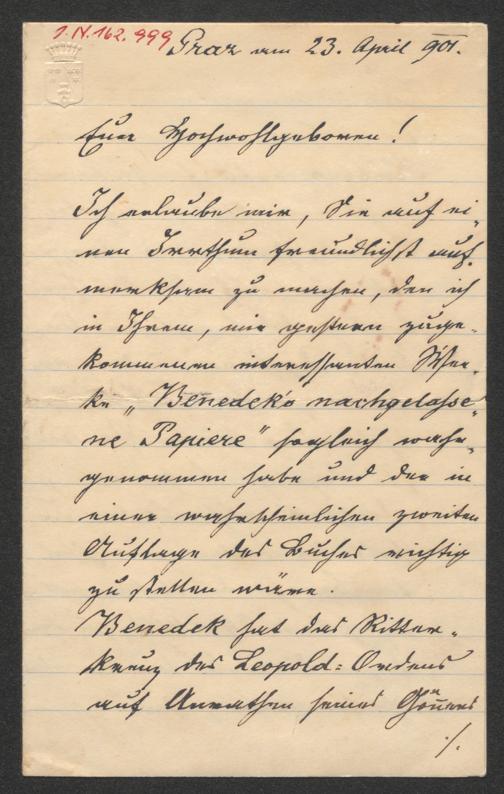 I.N. 162.999
Graz am 23. April 901.
Euer Hochwohlgeboren!
Ich erlaube mir, Sie auf ei-
nen Irrthum freundlichst auf-
merksam zu machen, den ich
in Ihrem, mir gestern zuge-
kommenen interessanten Wer-
ke „Benedek's nachgelasse-
ne Papiere" sogleich wahr-
genommen habe und der in
einer wahrscheinlichen zweiten
Auflage des Buches richtig
zu stellen wäre.
Benedek hat das Ritter-
kreuz des Leopold=Ordens
auf Anrathen seines Gönners
./.